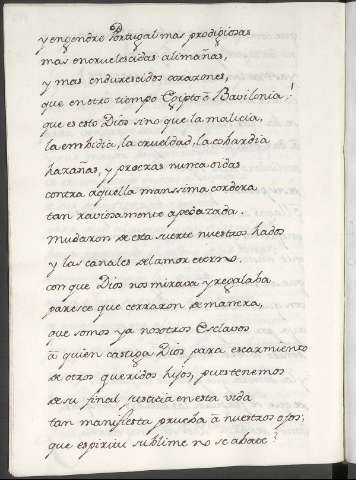 y engendre Portugal mas prodigiosas
mas encruelescidas alimañas,
y mas endurescidos corazones,
que en otro tiempo Egipto ò Bavilonia!
que es esto Dios sino que la malicia,
la embidia, la crueldad, la cobardia
hazañas, y proezas nunca oidas
contra aquella manssima cordera
tan raviosamente apedazada.
mudaron de esta suerte nuestros hados
y las canales del amor eterno.
con que Dios nos mirava y regalaba
paresce que cerraron de manera,
que somos ya nosotros Esclavos
à quien castiga Dios para escarmiento
de otros queridos hijos, pues tenemos
de su final justicia en esta vida
tan manifiesta prueba à nuestros ojos;
que espiritu sublime no se abate?